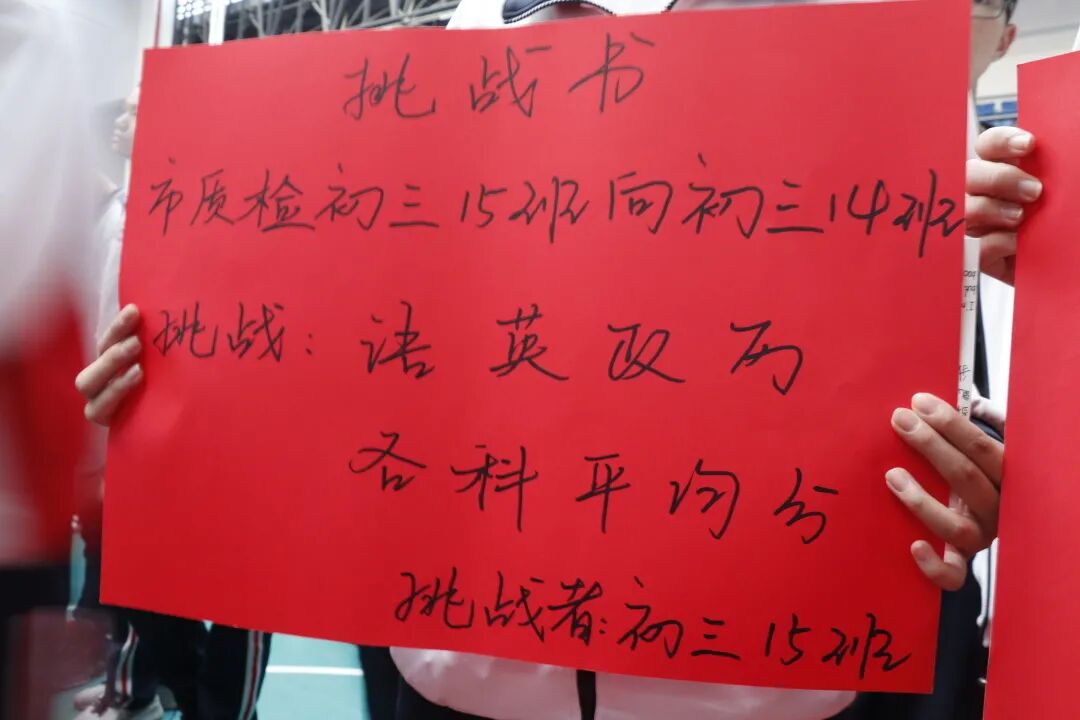 挑战书
市质检初三15班向初三14班
挑战：语英政历
各科平均分
挑战者：初三15班